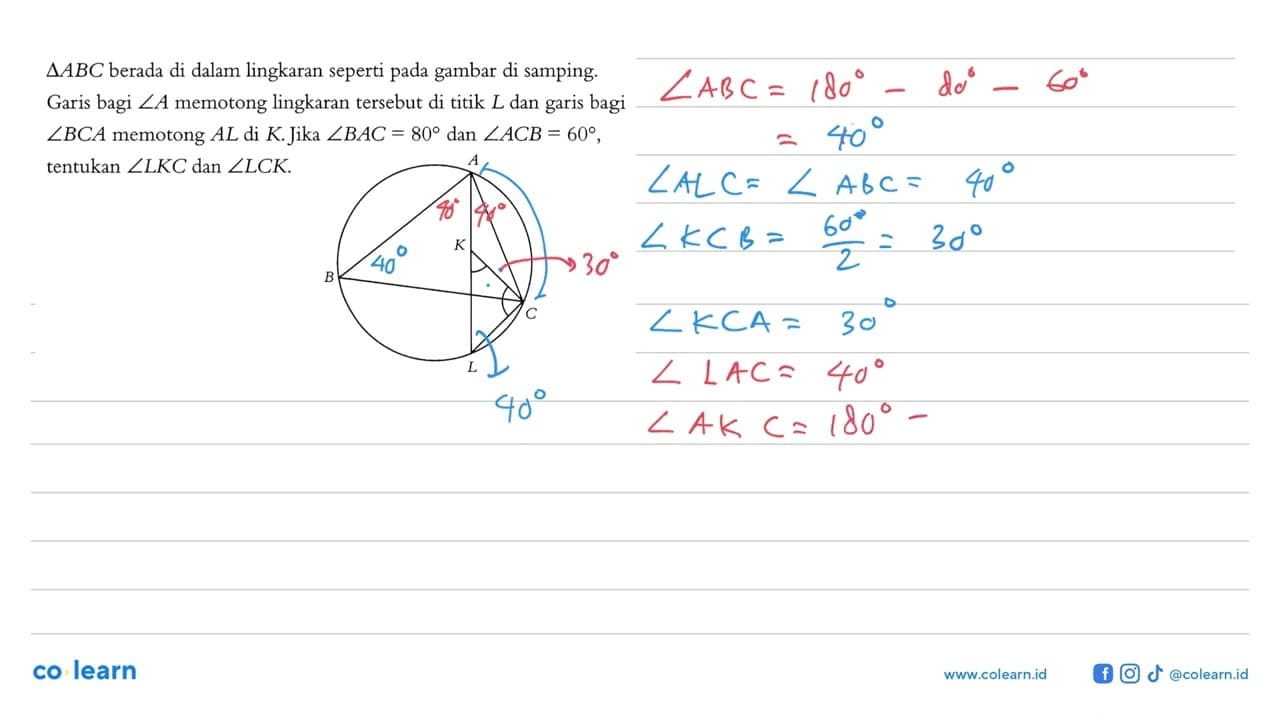 ΔABC berada di dalam lingkaran seperti pada gambar di samping.
Garis bagi ∠A memotong lingkaran tersebut di titik L dan garis bagi
∠BCA memotong AL di K. Jika ∠BAC = 80° dan ∠ACB = 60°,
tentukan ∠LKC dan ∠LCK.
A
40° 40°
K
40°
30°
B
C
L
40°
∠ABC = 180° - 80° - 60°
= 40°
∠ALC = ∠ABC = 40°
∠KCB = 60°/2 = 30°
∠KCA = 30°
∠LAC = 40°
∠AKC = 180° -
co learn
www.colearn.id
@colearn.id